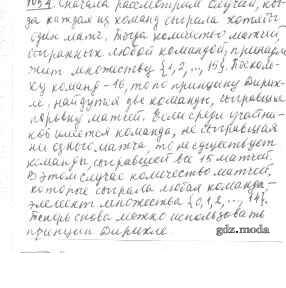 Сначала рассмотрим случай, ког-
да каждая из команд сыграла хотя бы
один матч. Тогда количество матчей,
сыгранных любой командой, принадле-
жит множеству {1, 2, ..., 15}. Посколь-
ку команд - 16, то по принципу Дирих-
ле, найдутся две команды, сыгравшие
поровну матчей. Если среди участни-
ков имеется команда, не сыгравшая
ни одного матча, то не существует
команды, сыгравшей все 15 матчей.
В этом случае количество матчей,
которые сыграла любая команда -
элемент множества {0, 1, 2, ..., 14}.
Теперь снова можно использовать
принцип Дирихле.
gdz.moda